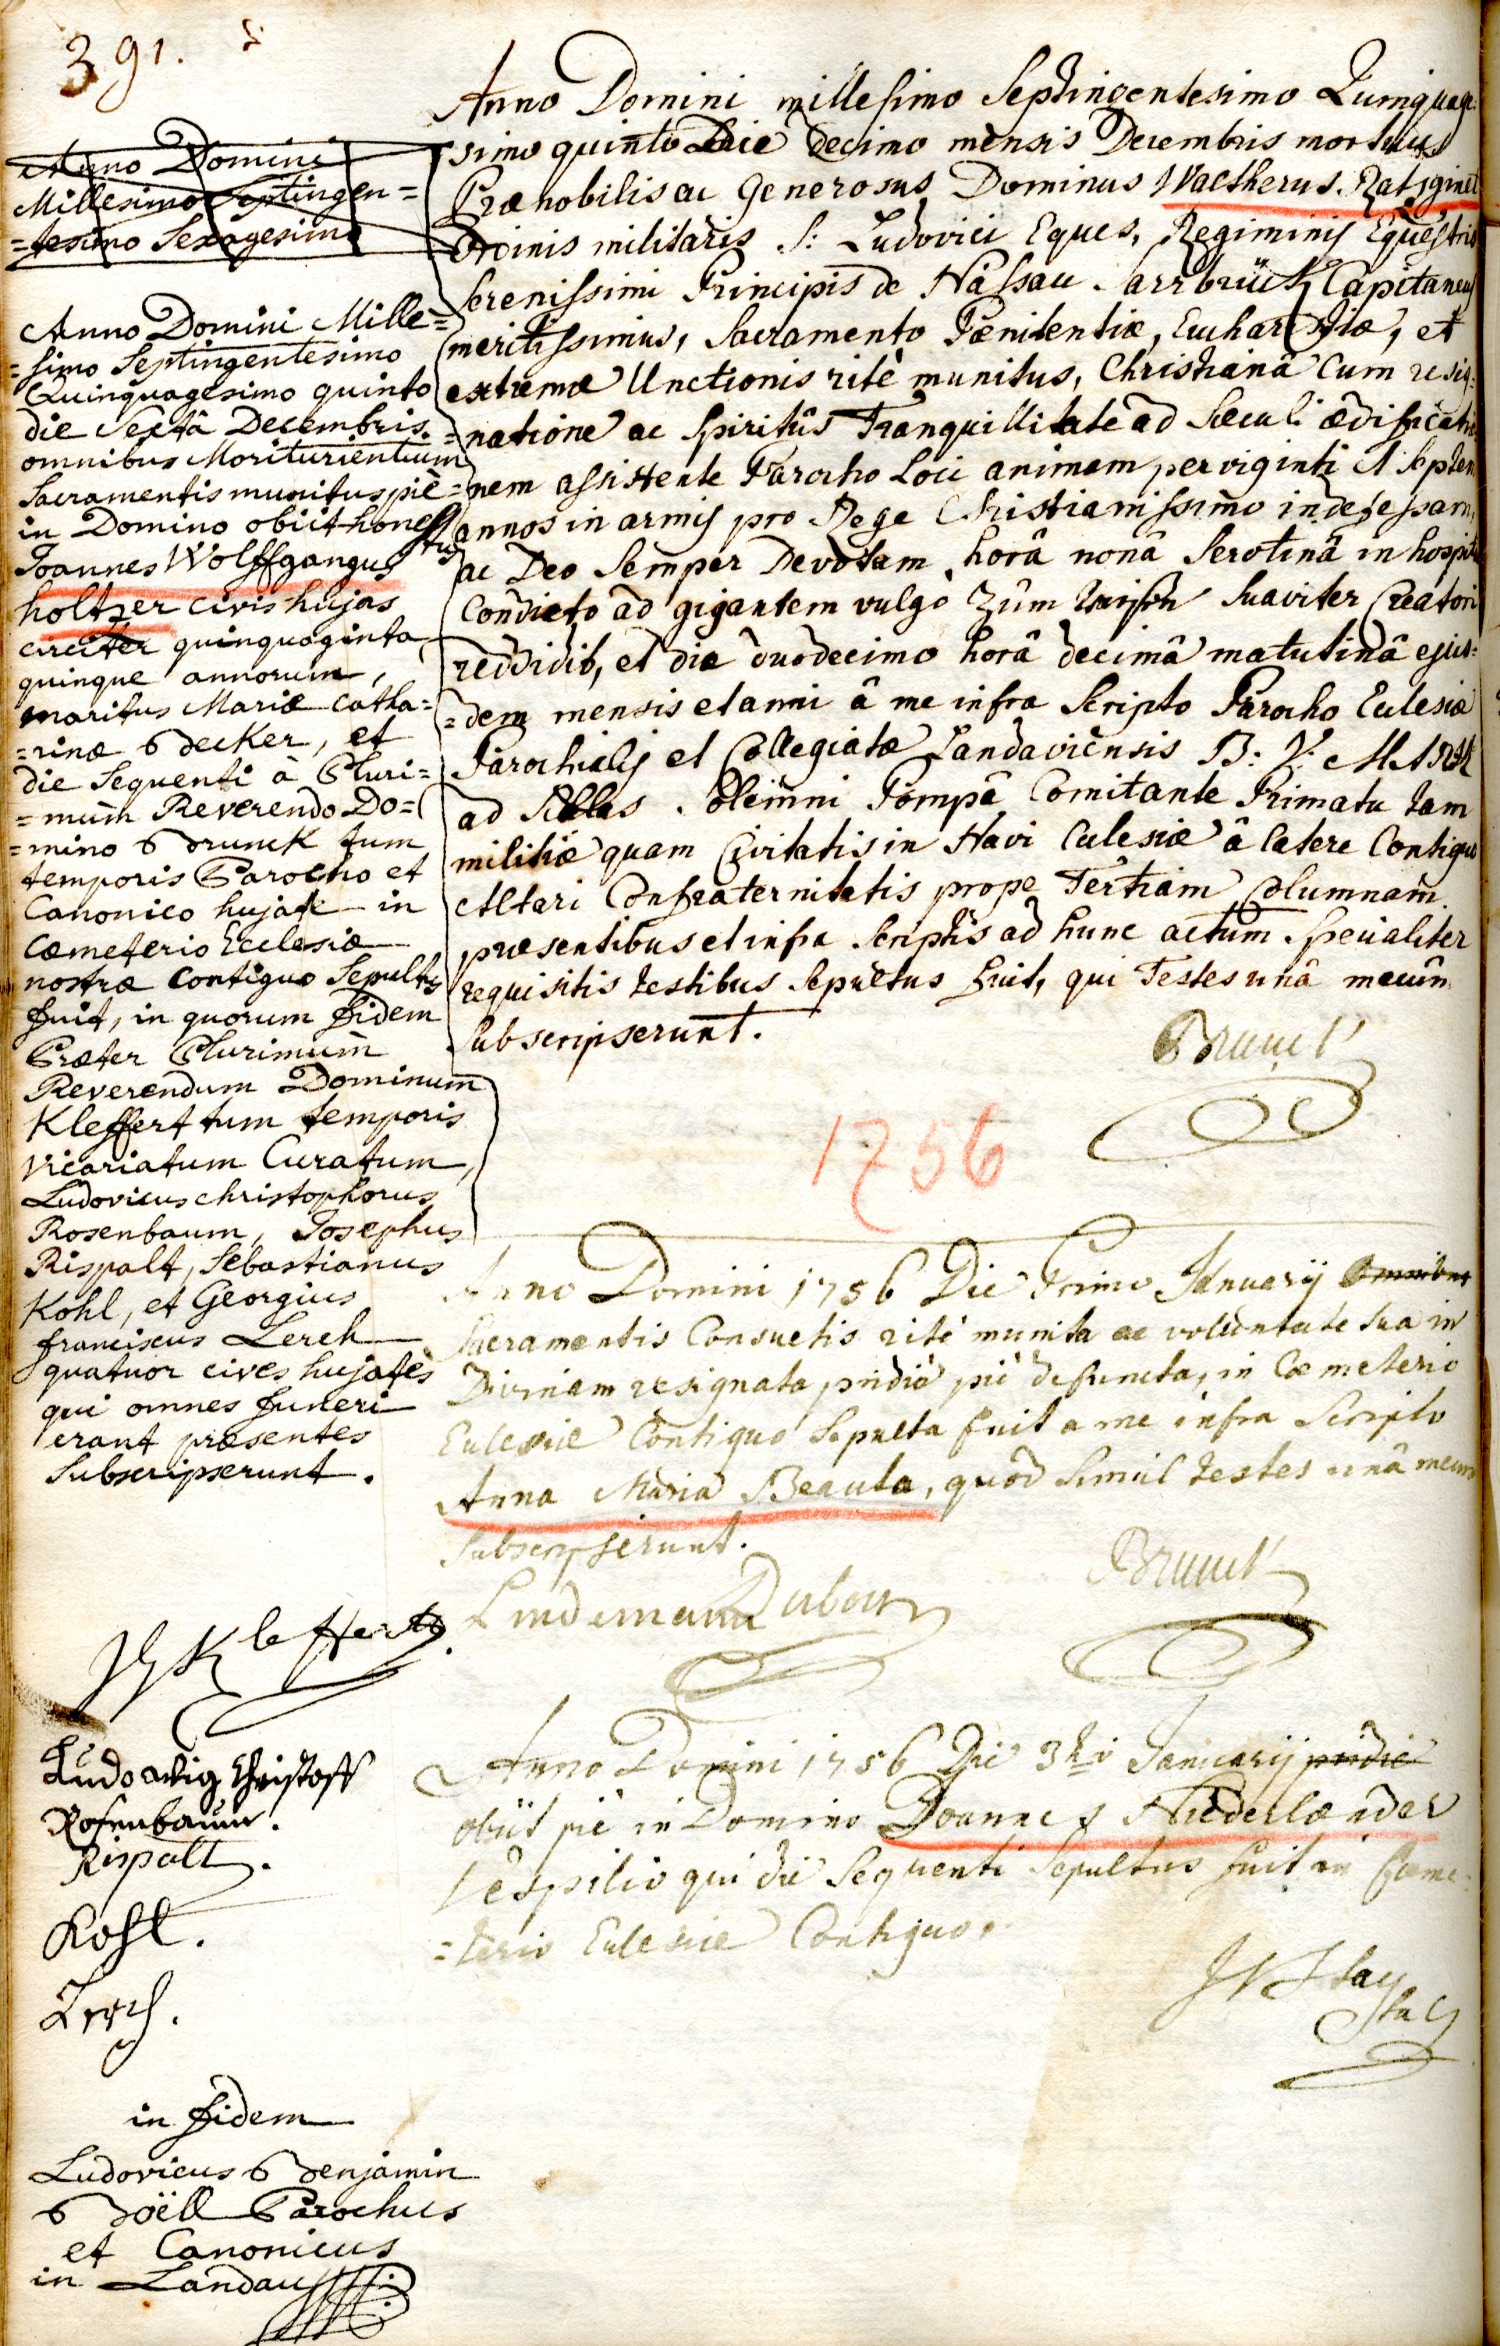 391.
Anno Domini
Millesimo Septingen=
=tesimo Sexagesimo
Anno Domini Mille=
=simo Septingentesimo
Quinquagesimo quinto
die Sextâ Decembris
omnibus Moriturientium
Sacramentis munitus piè
in Domino obiit honestus
Joannes Wolffgangus
holtzer civis hujas
circiter quinquaginta
quinque annorum,
maritus Mariæ Catha=
=rinæ Becker, et
die Sequenti à Pluri=
=mùm Reverendo Do=
=mino Brunck tum
temporis Parocho et
Canonico hujate in
Cæmeterio Ecclesiæ
nostræ Contiguo Sepultus
fuit, in quorum fidem
Præter Plurimùm
Reverendum Dominum
Kleffert tum temporis
Vicariatum Curatum,
Ludovicus christophorus
Rosenbaum, Josephus
Rispalt, Sebastianus
Kohl, et Georgius
franciscus Lerch
quatuor cives hujatès
qui omnes funeri
erant præsentes
Subscripserunt.
Kleffert
Ludowig Christoff
Rosenbaum.
Rispalt.
Kohl.
Lerch.
in fidem
Ludovicus Benjamin
Boëll Parochus
et Canonicus
in Landau
Anno Domini millesimo Septingentesimo Quinquage:
simo quinto Die decimo mensis Decembris mortuus
Prænobilis ac Generosus Dominus Waltherus
Ordinis militaris S: Ludovici Eques, Regiminis Equestris
Serenissimi Principis de Nassau Sarrbrück Capitaneus
meritissimus, Sacramento Pœnitentiæ, Eucharistiæ, et
extremæ Unctionis ritè munitus, Christianâ Cum resig:
=natione ac Spiritûs Tranquillitate ad Sæculi ædificatio
=nem assistente Parocho Loci animam per viginti et Septem
annos in armis pro Rege Christianissimo indefessam,
ac Deo Semper Devotam, horâ nonâ Serotinâ in hospitio
Condicto ad gigantem vulgò Zum Rissen Suaviter Creatori
reddidit, et die duodecimo horâ decimâ matutinâ ejus=
=dem mensis et anni â me infra Scripto Parocho Eclesiæ
Parochialis et Collegiatæ Landaviensis B: V: MARIÆ
ad Stellas Solemni Pompâ Comitante Primatu tam
militiæ quam Civitatis in Navi Eclesiæ â Latere Contiguo
Altari Confraternitatis prope Tertiam Columnam.
præsentibus et infra Scriptis ad hunc actum Specialiter
requisitis testibus Sepultus fuit, qui Testes unâ mecûm
Subscripserunt.
Brunck
1756
Anno Domini 1756 Die Primo Januarij omnibus
Sacramentis Consuetis ritè munita ac voluntate Sua in
Divinam resignata pridiè piè defuncta, in Cœmeterio
Eclesiæ Contiguo Sepulta fuit a me infra Scripto
Anna Maria Beauta, quod Simul testes unâ mecum
Subscripserunt.
Brunck
Lindemann Dubois
Anno Domini 1756 Die 3tio Januarij pridie
obiit piè in Domino Joannes Niederlænder
Vespilio qui die Sequenti Sepultus fuit in Cœme:
=terio Eclesiæ Contiguo.